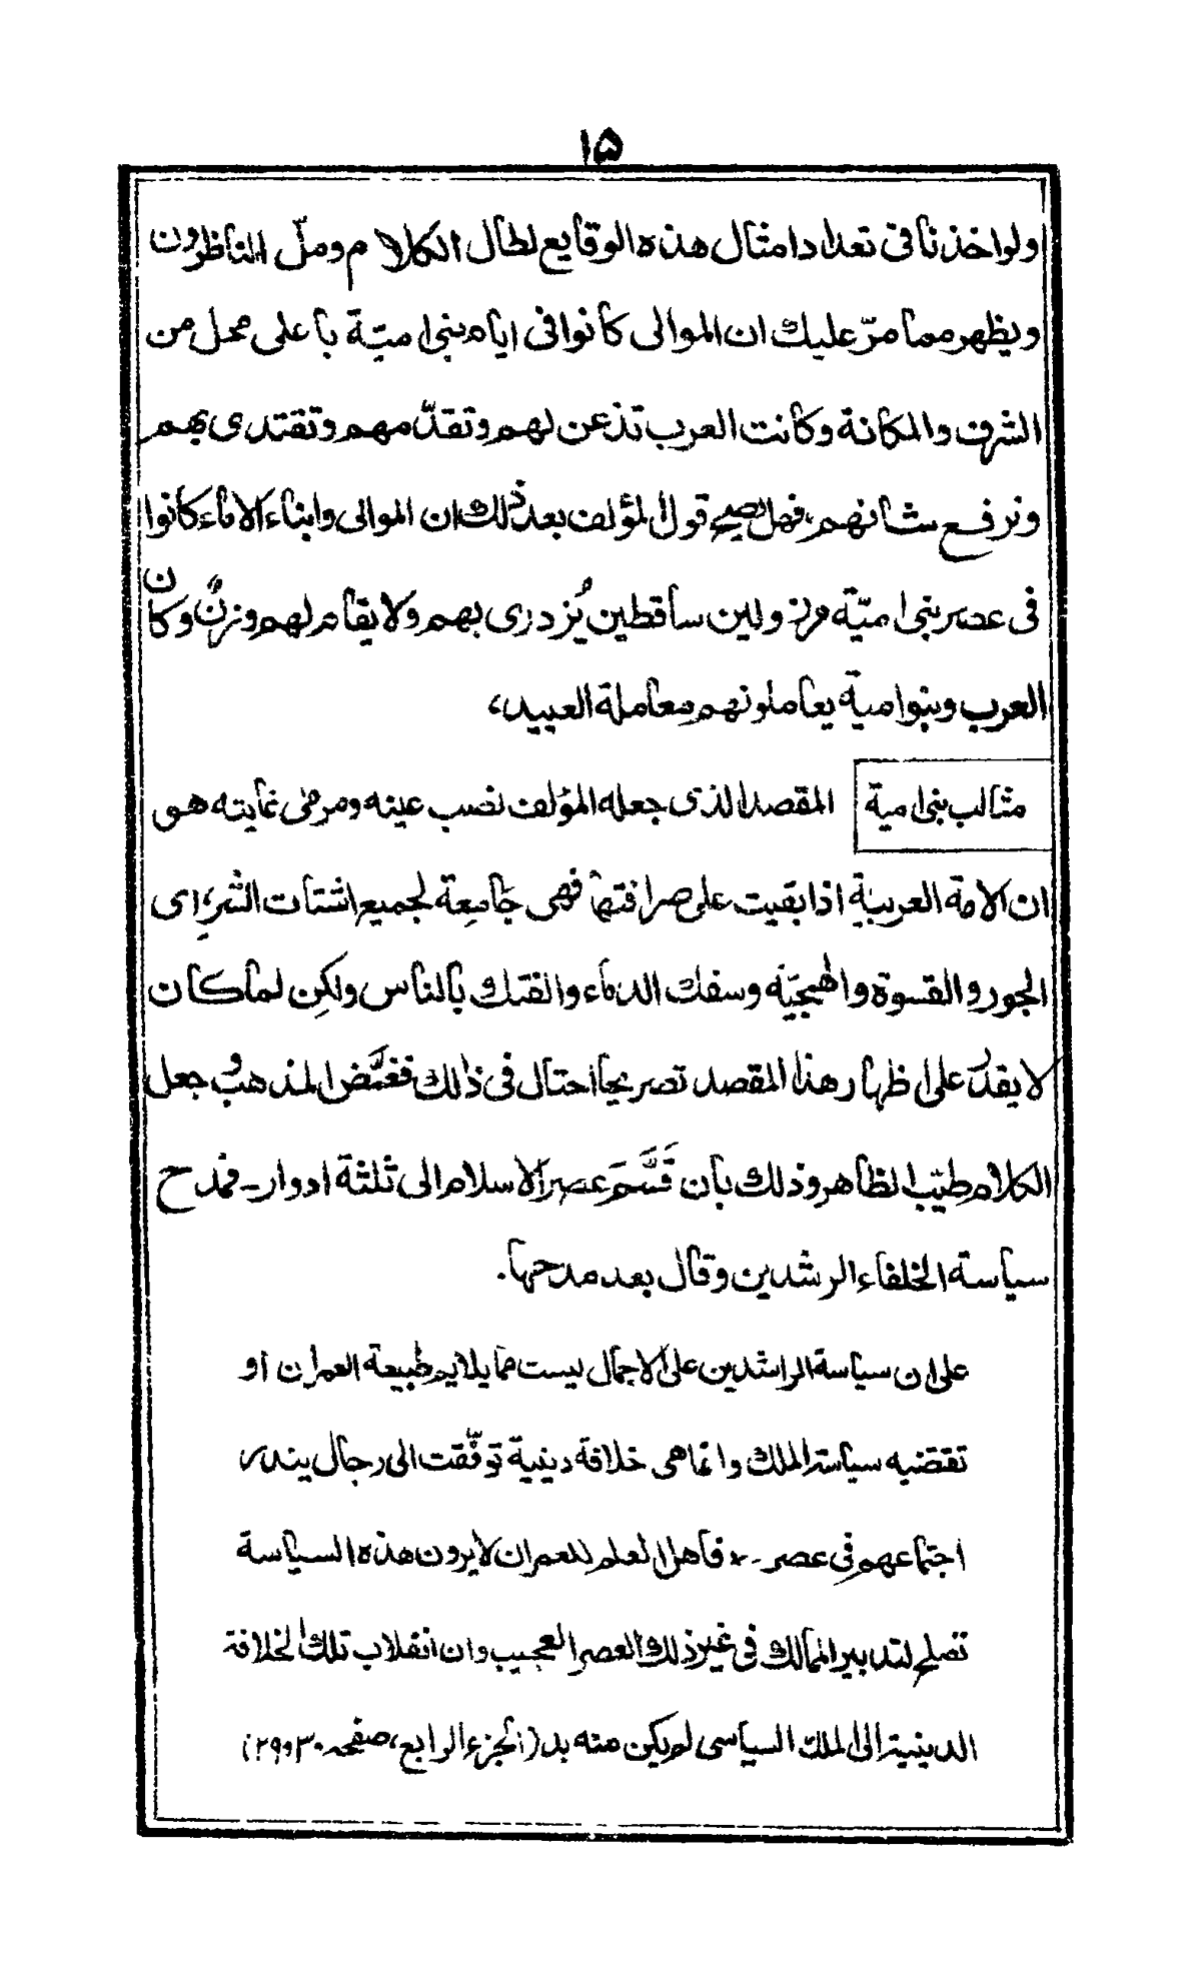 ١٥
ولو اخذنا فى تعداد امثال هذه الوقايع لطال الكلام وملّ الناظرون
ويظهر مما مرّ عليك ان الموالى كانوا فى ايام بنى اميّة بأعلى محل من
الشرف والمكانة وكانت العرب تذعن لهم وتقدّمهم وتقتدى بهم
وترفع شانهم، فهل يصح قول المؤلف بعد ذلك ان الموالى وابناء الاماء كانوا
فى عصر بنى اميّة مرذولين ساقطين يُزدرى بهم ولا يقام لهم وزنٌ وكان
العرب وبنوامية يعاملونهم معاملة العبيد،
مثالب بنى امية المقصد الذى جعله المؤلف نصب عينه ومرمى غايته هو
ان الامة العربية اذا بقيت على صرافتها فهى جَامِعة لجميع اشتات الشرِّ، اى
الجور والقسوة والهمجيّة وسفك الدماء والفتك بالناس ولكِن لما كان
لا يقدر على اظهار هذا المقصد تصريحاً احتال فى ذلك فغمَّض المذهب وجعل
الكلام طيّب الظاهر وذلك بأن قَسَّمَ عصر الاسلام الى ثلثة ادوار - فمدح
سياسة الخلفاء الرشدين وقال بعد مدحها.
على ان سياسة الراشدين على الاجمال ليست مما يلايم طبيعة العمران او
تقتضيه سياسة الملك وانما هى خلافة دينية توفّقت الى رجال يندر
اجتماعهم فى عصر -- فاهل العلم للعمران لا يرون هذه السياسة
تصلح لتدبير الممالك فى غير ذلك العصر العجيب وان انقلاب تلك الخلافة
الدينية الى الملك السياسى لم يكن منه بد (الجزء الرابع، صفحه ٣٠ و ٢٩)